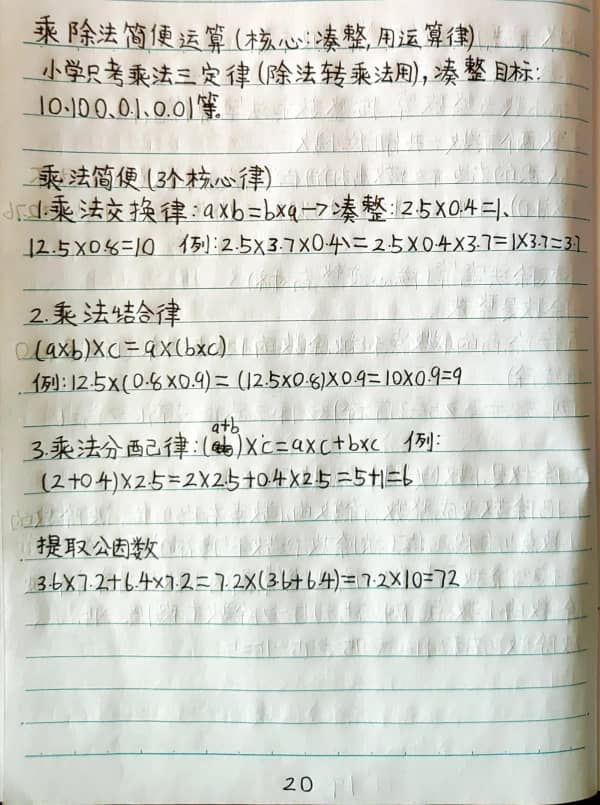 乘除法简便运算(核心:凑整,用运算律)
小学只考乘法三定律(除法转乘法用),凑整目标:
10、100、0.1、0.01等。
乘法简便(3个核心律)
1.乘法交换律:a×b=b×a→凑整:2.5×0.4=1、
12.5×0.8=10 例:2.5×3.7×0.4=2.5×0.4×3.7=1×3.7=3.7
2.乘法结合律
(a×b)×c=a×(b×c)
例:12.5×(0.8×0.9)=(12.5×0.8)×0.9=10×0.9=9
3.乘法分配律:(a+b)×c=a×c+b×c 例:
(2+0.4)×2.5=2×2.5+0.4×2.5=5+1=6
提取公因数
3.6×7.2+6.4×7.2=7.2×(3.6+6.4)=7.2×10=72
20